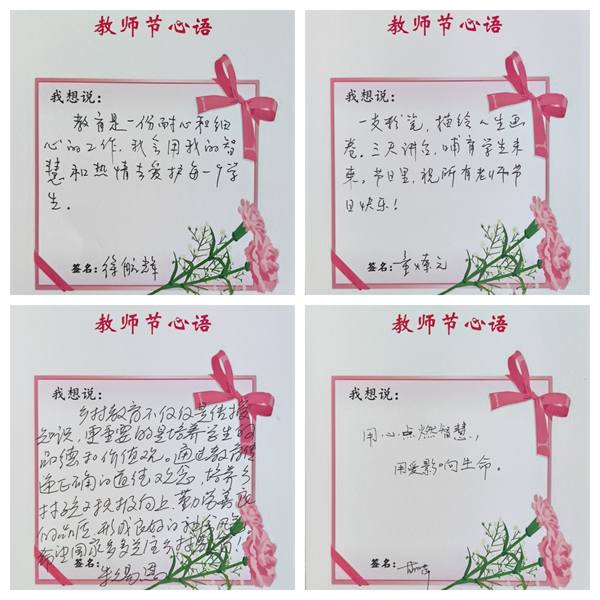 教师节心语
我想说：
教育是一份耐心和细
心的工作，我会用我的智
慧和热情去爱护每一个学
生。
签名：徐航辉
教师节心语
我想说：
一支粉笔，描绘人生画
卷。三尺讲台，哺育学生未
来。节日里，祝所有老师节
日快乐！
签名：
教师节心语
我想说：
乡村教育不仅仅是传授
知识，更重要的是培养学生的
品德和价值观。通过教育传
递正确的道德观念，培养乡
村孩子积极向上、勤劳善良
的品质，形成良好的社会风气
希望国家多多关注乡村教育！
签名：
教师节心语
我想说：
用心点燃智慧，
用爱影响生命。
签名：